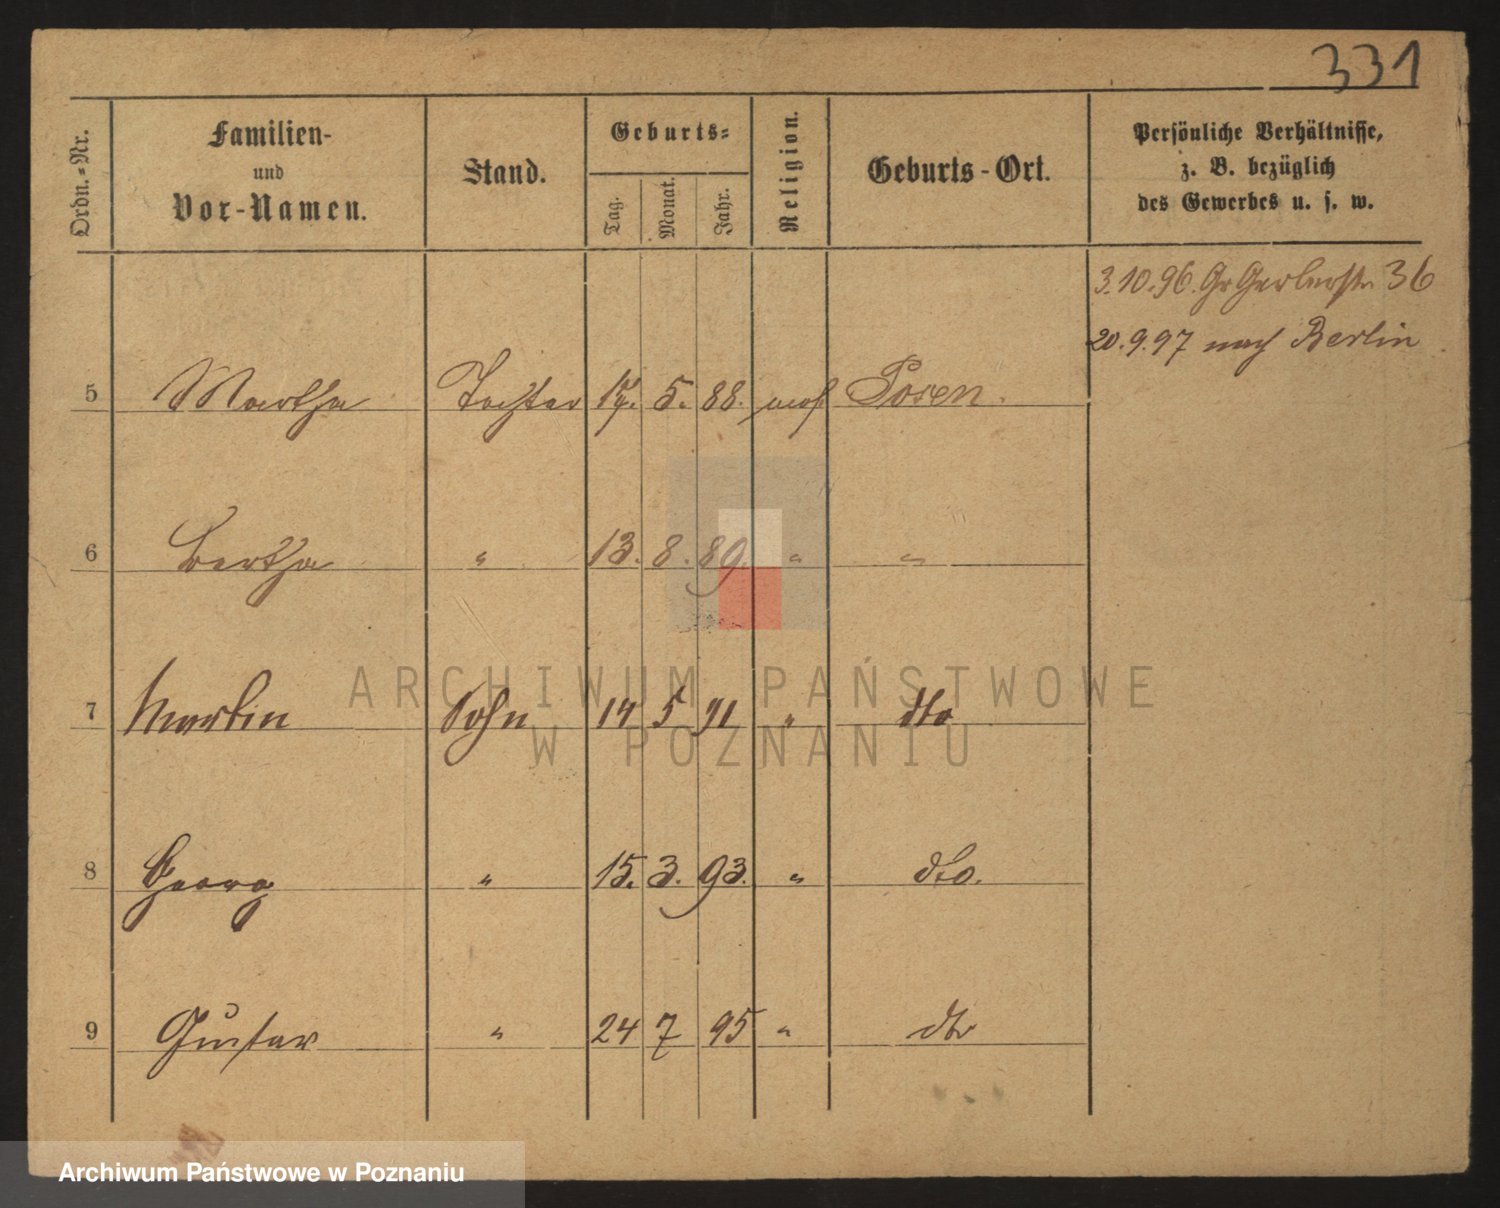 331
Ordn.=Nr.
Familien-
und
Vor-Namen.
Stand.
Geburts=
Tag.
Monat.
Jahr.
Religion.
Geburts-Ort.
Persönliche Verhältnisse,
z. B. bezüglich
des Gewerbes u. s. w.
3.10.96. Gr Gerberstr 36
20.9.97 nach Berlin
5 Martha Tochter 17. 5. 88. mos. Posen.
6 Bertha " 13. 8. 89. " "
7 Martin Sohn 14 5 91 " dto
8 Georg " 15. 3. 93. " dto.
9 Gustav " 24 7 95 " dto
ARCHIWUM PAŃSTWOWE
W POZNANIU
Archiwum Państwowe w Poznaniu